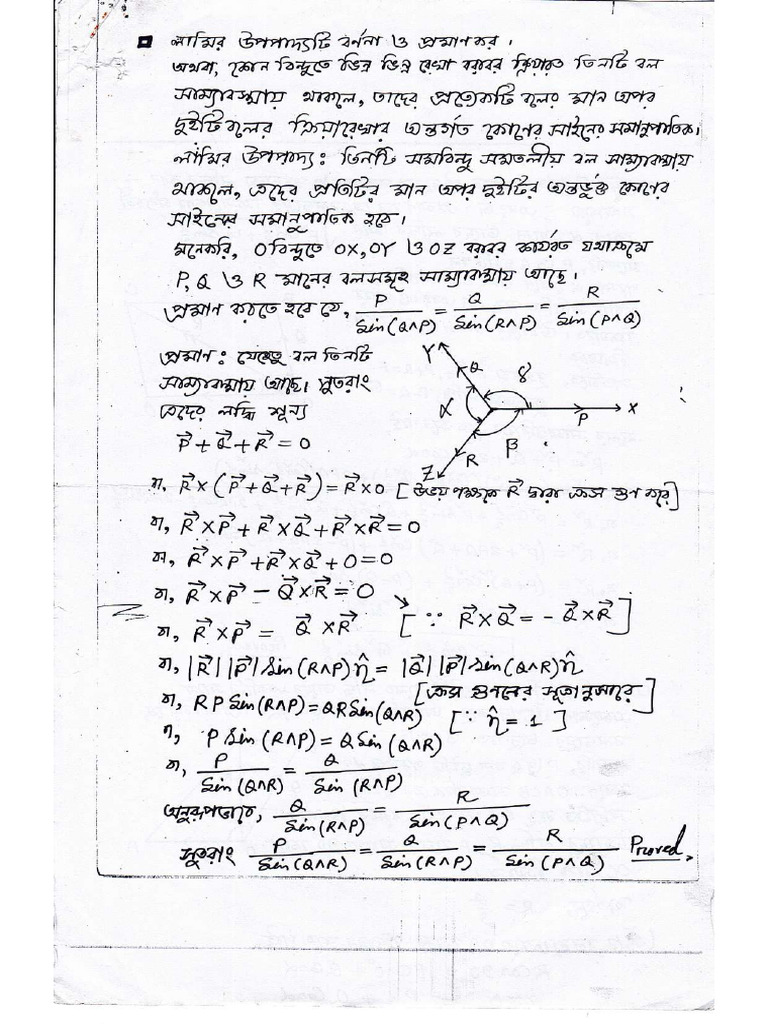 লামির উপপাদ্যটি বর্ণনা ও প্রমাণ কর।
অথবা, কোন বিন্দুতে ভিন্ন ভিন্ন রেখা বরাবর ক্রিয়ারত তিনটি বল
সাম্যাবস্থায় থাকলে, তাদের প্রত্যেকটি বলের মান অপর
দুইটি বলের ক্রিয়ারেখার অন্তর্গত কোণের সাইনের সমানুপাতিক।
লামির উপপাদ্য: তিনটি সমবিন্দু সমতলীয় বল সাম্যাবস্থায়
থাকলে, এদের প্রতিটির মান অপর দুইটির অন্তর্ভুক্ত কোণের
সাইনের সমানুপাতিক হবে।
মনেকরি, O বিন্দুতে OX, OY ও OZ বরাবর কার্যরত যথাক্রমে
P, Q ও R মানের বলসমূহ সাম্যাবস্থায় আছে।
প্রমাণ করতে হবে যে, P/Sin(Q∧P) = Q/Sin(R∧P) = R/Sin(P∧Q)
প্রমাণ: যেহেতু বল তিনটি
সাম্যাবস্থায় আছে। সুতরাং
এদের লব্ধি শূন্য
Y Q γ
α P X
β
Z R
P⃗+Q⃗+R⃗=0
বা, R⃗×(P⃗+Q⃗+R⃗)=R⃗×0 [উভয় পক্ষকে R⃗ দ্বারা ক্রস গুণ করে]
বা, R⃗×P⃗+R⃗×Q⃗+R⃗×R⃗=0
বা, R⃗×P⃗+R⃗×Q⃗+0=0
বা, R⃗×P⃗ - Q⃗×R⃗=0
বা, R⃗×P⃗ = Q⃗×R⃗ [∵ R⃗×Q⃗ = - Q⃗×R⃗]
বা, |R⃗||P⃗|Sin(R∧P)η̂ = |Q⃗||P⃗|Sin(Q∧R)η̂
[ক্রস গুণনের সূত্রানুসারে]
বা, RP Sin(R∧P)=QR Sin(Q∧R) [∵ η̂ = 1]
বা, P Sin(R∧P)=Q Sin(Q∧R)
বা, P/Sin(Q∧R) = Q/Sin(R∧P)
অনুরূপভাবে, Q/Sin(R∧P) = R/Sin(P∧Q)
সুতরাং P/Sin(Q∧R) = Q/Sin(R∧P) = R/Sin(P∧Q) Proved.